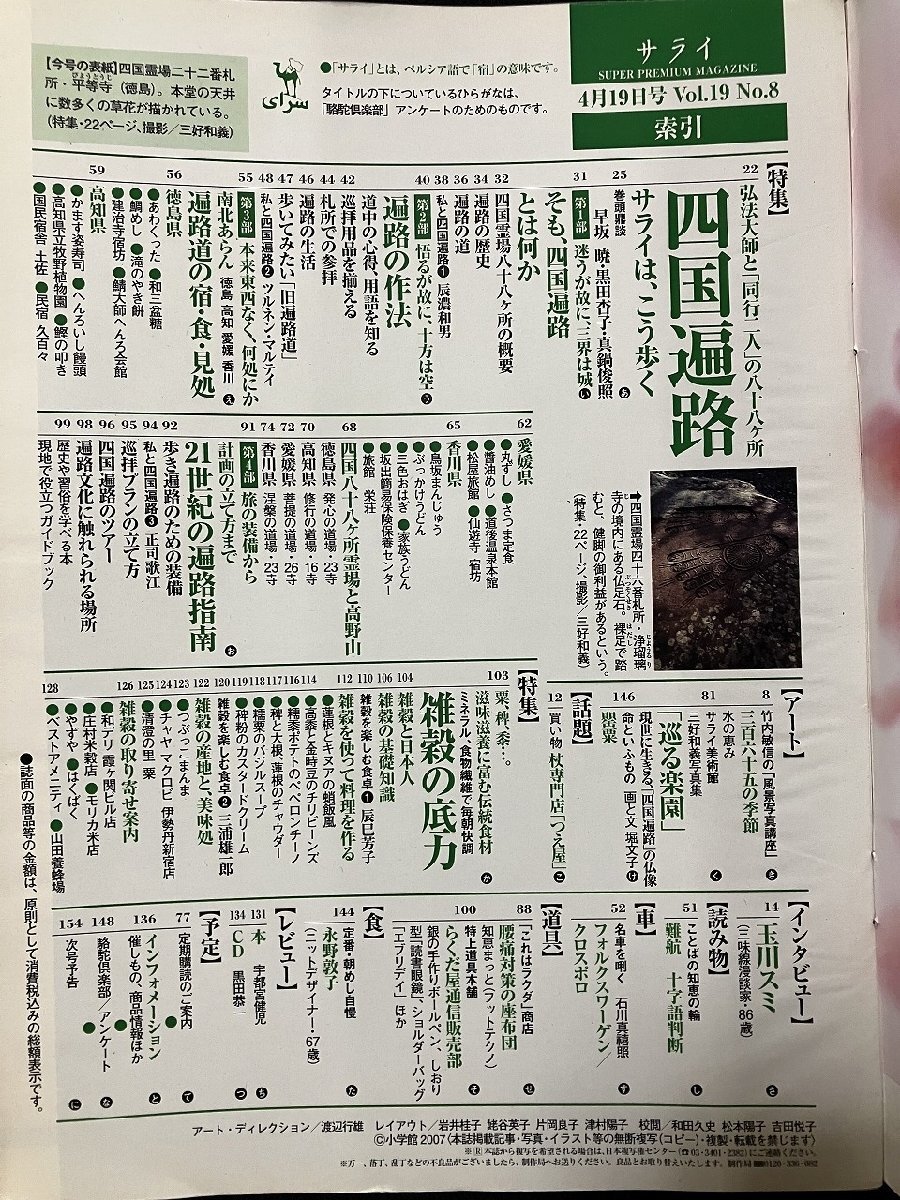 サライ
SUPER PREMIUM MAGAZINE
4月19日号 Vol.19 No.8
索引
●「サライ」とは、ペルシア語で「宿」の意味です。
タイトルの下についているひらがなは、
「駱駝倶楽部」アンケートのためのものです。
سرای
【今号の表紙】四国霊場二十二番札
所・平等寺（徳島）。本堂の天井
に数多くの草花が描かれている。
（特集・22ページ、撮影／三好和義）
【特集】
22 弘法大師と「同行二人」の八十八ヶ所
四国遍路
サライは、こう歩く
25 巻頭鼎談
早坂 暁・黒田杏子・真鍋俊照 あ
31 第1部 迷うが故に、三界は城 い
そも、四国遍路
とは何か
32 四国霊場八十八ヶ所の概要
34 遍路の歴史
36 遍路の道
38 私と四国遍路❶ 辰濃和男
40 第2部 悟るが故に、十方は空 う
遍路の作法
42 道中の心得、用語を知る
44 巡拝用品を揃える
札所での参拝
46 遍路の生活
47 歩いてみたい「旧遍路道」
48 私と四国遍路❷ ツルネン・マルテイ
55 第3部 本来東西なく、何処にか
南北あらん 徳島 高知 愛媛 香川 え
遍路道の宿・食・見処
56 徳島県
●あわくった ●和三盆糖
●鯛めし ●滝のやき餅
●建治寺宿坊 ●鯖大師へんろ会館
59 高知県
●かます姿寿司 ●へんろいし饅頭
●高知県立牧野植物園 ●鰹の叩き
●国民宿舎 土佐 ●民宿 久百々
62 愛媛県
●丸ずし ●さつま定食
●醤油めし ●道後温泉本館
●松屋旅館 ●仙遊寺 宿坊
65 香川県
●鳥坂まんじゅう
●ぶっかけうどん
●三色おはぎ ●家族うどん
●坂出簡易保険保養センター
●旅館 栄荘
68 四国八十八ヶ所霊場と高野山
徳島県 発心の道場・23寺
70 高知県 修行の道場・16寺
72 愛媛県 菩提の道場・26寺
74 香川県 涅槃の道場・23寺
91 第4部 旅の装備から
計画の立て方まで
21世紀の遍路指南 お
92 歩き遍路のための装備
94 私と四国遍路❸ 正司歌江
95 巡拝プランの立て方
96 四国遍路のツアー
98 遍路文化に触れられる場所
99 歴史や習俗を学べる本
現地で役立つガイドブック
➡四国霊場四十六番札所・浄瑠璃
寺の境内にある仏足石。裸足で踏
むと、健脚の御利益があるという。
（特集・22ページ、撮影／三好和義）
【特集】
103 粟、稗、黍…。
滋味滋養に富む伝統食材
ミネラル、食物繊維で毎朝快調
雑穀の底力 か
104 雑穀と日本人
106 雑穀の基礎知識
110 雑穀を楽しむ食卓❶ 辰巳芳子
112 雑穀を使って料理を作る
●蓮根とキヌアの蛸飯風
114 ●高黍と金時豆のチリビーンズ
116 ●糯黍ポテトのペペロンチーノ
117 ●稗と大根、蓮根のチャウダー
118 ●糯粟のバジルスープ
119 ●稗粉のカスタードクリーム
120 雑穀を楽しむ食卓❷ 三浦雄一郎
122 雑穀の産地と、美味処
●つぶつぶまんま
123 ●チャヤ マクロビ 伊勢丹新宿店
124
125 ●清澄の里 粟
126 雑穀の取り寄せ案内
●和デリ 霞ヶ関ビル店
●庄村米穀店 ●モリカ米店
●やずや ●はくばく
128 ●ベストアメニティ ●山田養蜂場
【アート】
8 竹内敏信の「風景写真講座」
三百六十五の季節 き
水の恵み
81 サライ美術館
三好和義写真集
「巡る楽園」 く
現世に生きる「四国遍路」の仏像
146 命といふもの 画と文／堀文子 け
罌粟
【話題】
12 買い物 杖専門店「つえ屋」 こ
【インタビュー】
14 玉川スミ さ
（三味線漫談家・86歳）
【読み物】
51 ことばの知恵の輪
難航 十字語判断 し
【車】
52 名車を嘶く 石川真禧照
フォルクスワーゲン／
クロスポロ す
【道具】
88 「これはラクダ」商店
腰痛対策の座布団 せ
知恵まっと（ラットテクノ）
100 特上道具本舗
らくだ屋通信販売部 そ
銀の手作りボールペン、しおり
型「読書眼鏡」、ショルダーバッグ
「エブリデイ」ほか
【食】
144 定番・朝めし自慢
永野敦子 た
（ニットデザイナー・67歳）
【レビュー】
131 本 宇都宮健児 ち
134 CD 黒田恭一 つ
【予定】
77 定期購読のご案内 て
136 インフォメーション と
催しもの、商品情報ほか
148 駱駝倶楽部／アンケート な
154 次号予告 に
●誌面の商品等の金額は、原則として消費税込みの総額表示です。
アート・ディレクション／渡辺行雄 レイアウト／岩井桂子 姥谷英子 片岡良子 津村陽子 校閲／和田久史 松本陽子 吉田悦子
©小学館 2007〈本誌掲載記事・写真・イラスト等の無断複写（コピー）・複製・転載を禁じます〉
※Ⓡ本誌から複写を希望される場合は、日本複写権センター（☎03-3401-2382）にご連絡ください。
※万一、落丁、乱丁などの不良品がございましたら、制作局へお送りください。良品とお取り替えいたします。制作局 0120-336-082